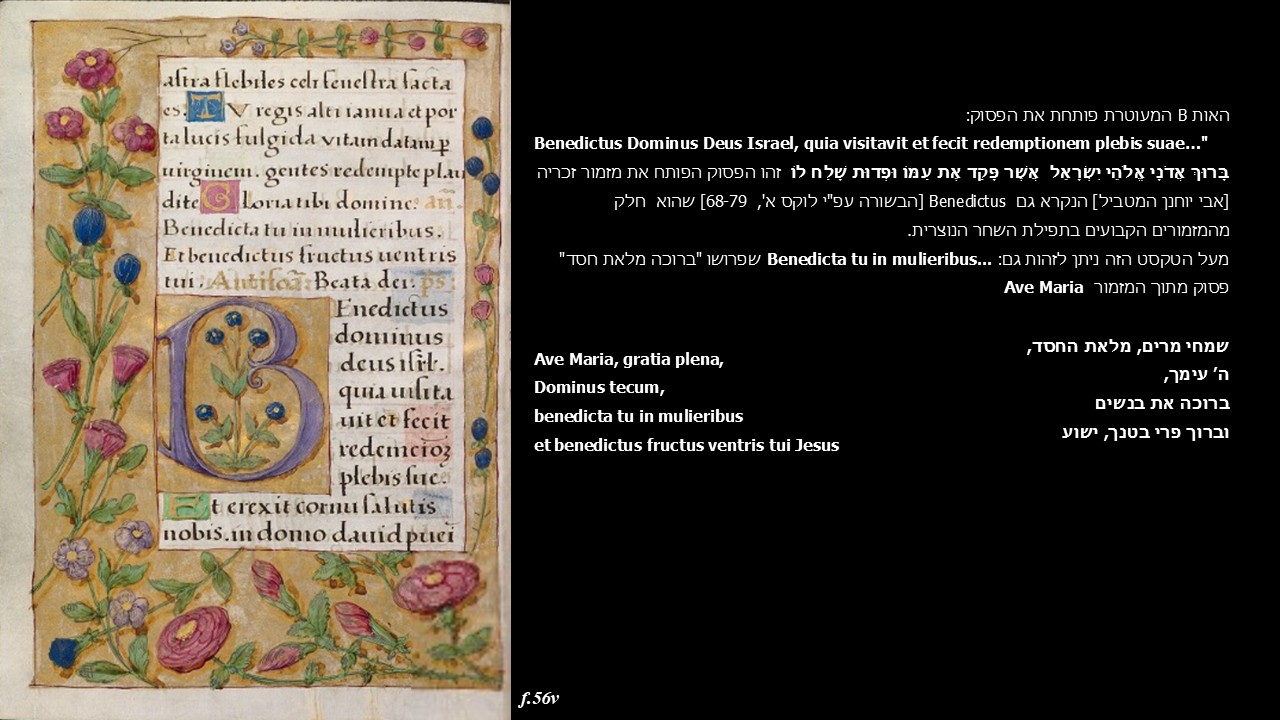 astra flebiles celi fenestra facta
es. TV regis alti ianua et por
ta lucis fulgida vitam datam p
virginem. gentes redempte plau
dite Gloria tibi domine. an.
Benedicta tu in mulieribus.
Et benedictus fructus uentris
tui. Antifoa. Beata dei. ps.
BEnedictus
dominus
deus isrl.
quia uisita
uit et fecit
redemcioz
plebis sue.
Et erexit cornu salutis
nobis. in domo dauid puei
האות B המעוטרת פותחת את הפסוק:
Benedictus Dominus Deus Israel, quia visitavit et fecit redemptionem plebis suae..."
בָּרוּךְ אֲדֹנָי אֱלֹהֵי יִשְׂרָאֵל אֲשֶׁר פָּקַד אֶת עַמּוֹ וּפְדוּת שָׁלַח לוֹ זהו הפסוק הפותח את מזמור זכריה
[אבי יוחנן המטביל] הנקרא גם Benedictus [הבשורה עפ"י לוקס א', 68-79] שהוא חלק
מהמזמורים הקבועים בתפילת השחר הנוצרית.
מעל הטקסט הזה ניתן לזהות גם: Benedicta tu in mulieribus... שפרושו "ברוכה מלאת חסד"
פסוק מתוך המזמור Ave Maria
שמחי מרים, מלאת החסד,
ה' עימך,
ברוכה את בנשים
וברוך פרי בטנך, ישוע
Ave Maria, gratia plena,
Dominus tecum,
benedicta tu in mulieribus
et benedictus fructus ventris tui Jesus
f.56v